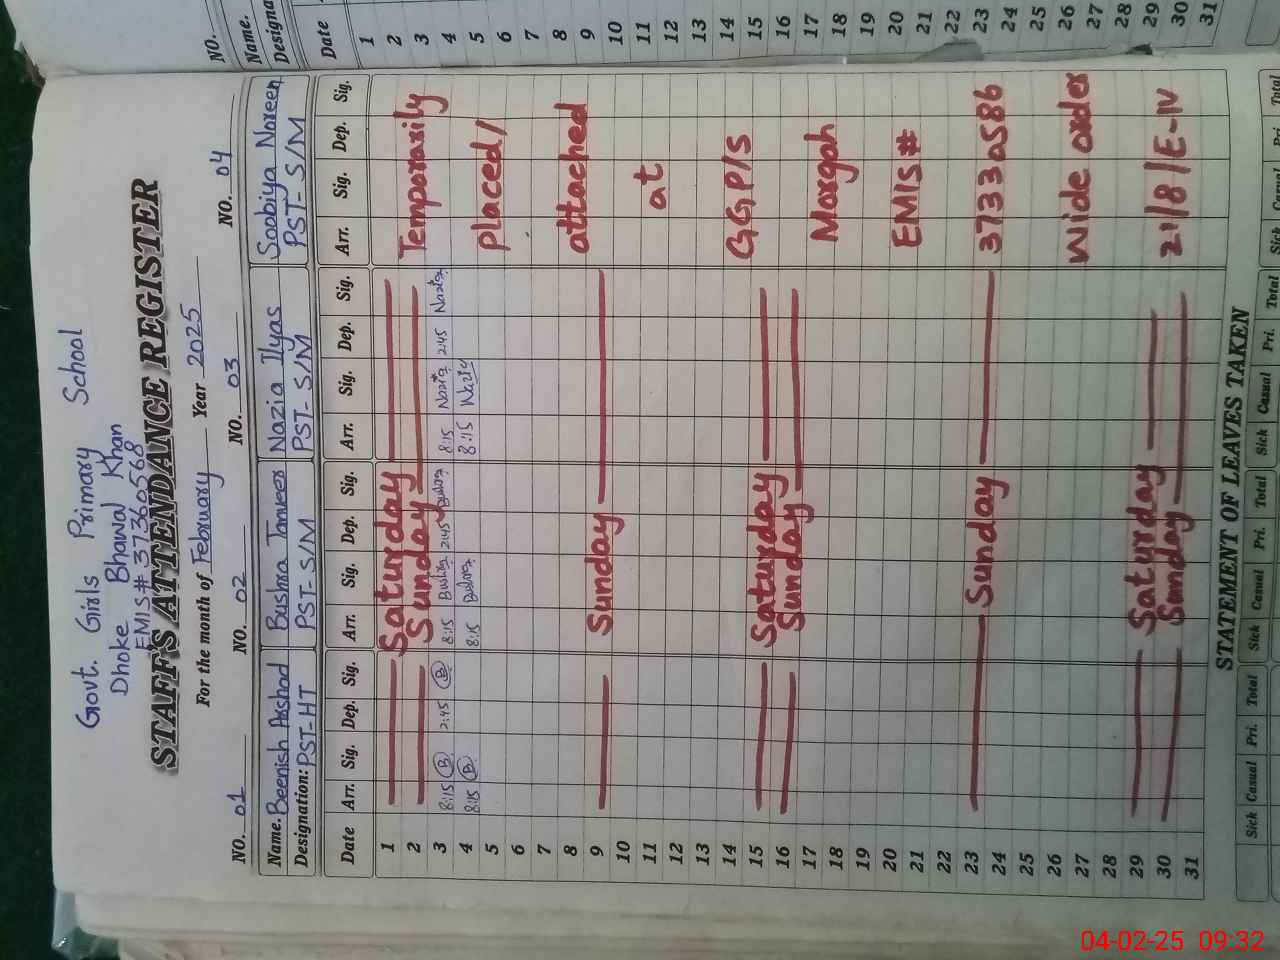 Govt. Girls Primary School
Dhoke Bhawal Khan
EMIS# 37360568
STAFF'S ATTENDANCE REGISTER
For the month of February Year 2025
NO. 01 NO. 02 NO. 03 NO. 04
Name. Beenish Arshad Bushra Tanveer Nazia Ilyas Soobiya Noreen
Designation: PST-HT PST-S/M PST-S/M PST-S/M
Date Arr. Sig. Dep. Sig. Arr. Sig. Dep. Sig. Arr. Sig. Dep. Sig. Arr. Sig. Dep. Sig.
1 Saturday
2 Sunday Temporarily
3 8:15 B 2:45 B 8:15 Bushra 2:45 Bushra 8:15 Nazia 2:45 Nazia
4 8:15 B 8:15 Bushra 8:15 Nazia
5 Placed/
6
7
8 attached
9 Sunday
10
11 at
12
13
14 GGP/S
15 Saturday
16 Sunday
17 Morgah
18
19
20 EMIS#
21
22
23 Sunday 37330586
24
25
26 Wide order
27
28
29 Saturday
30 Sunday 21/8/E-IV
31
STATEMENT OF LEAVES TAKEN
Sick Casual Pri. Total Sick Casual Pri. Total Sick Casual Pri. Total Sick Casual Pri. Total
NO.
Name.
Designa
Date
1
2
3
4
5
6
7
8
9
10
11
12
13
14
15
16
17
18
19
20
21
22
23
24
25
26
27
28
29
30
31
04-02-25 09:32